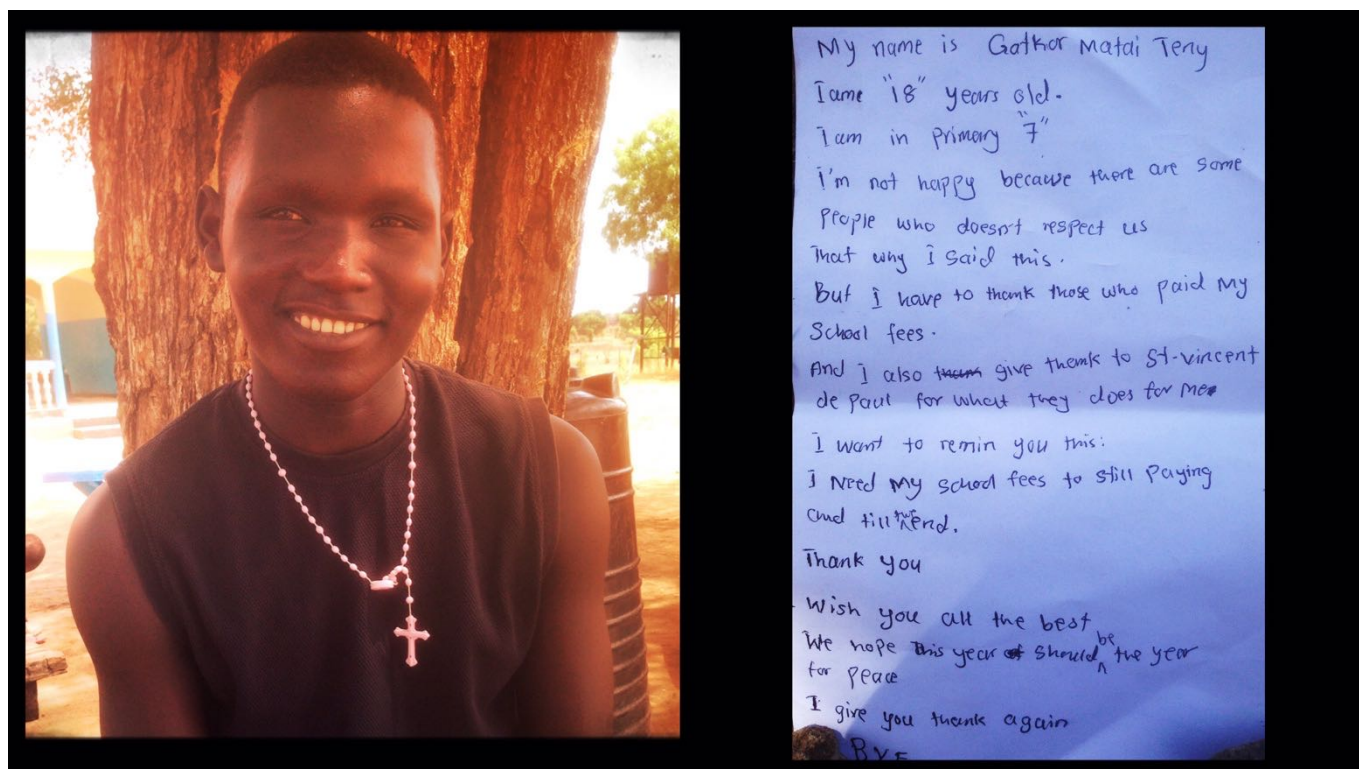 My name is Gatkor Matai Teny
Iame "18" years old.
I am in primary "7"
i'm not happy because there are some
People who doesn't respect us
That why I said this.
But I have to thank those who paid My
School fees.
And I also give thank to St-vincent
de paul for what they does for me
I want to remin you this:
I Need My school fees to still paying
and till the end.
Thank you
Wish you all the best
We hope this year should be the year
for peace
I give you thank again
BYE